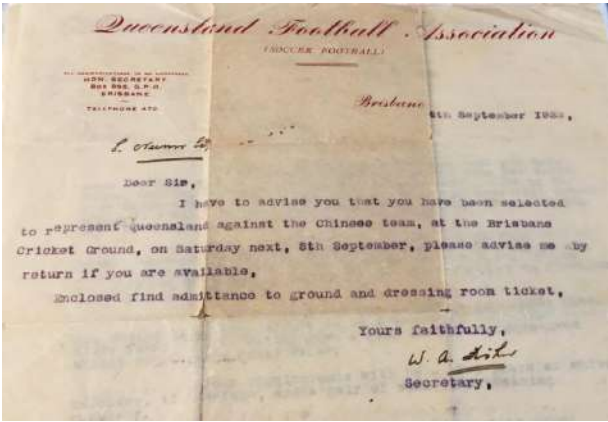 Queensland Football Association
(SOCCER FOOTBALL)
ALL COMMUNICATIONS TO BE ADDRESSED
HON. SECRETARY
BOX 895, G.P.O.
BRISBANE
TELEPHONE 470
Brisbane
th September 1923,
Dear Sir,
I have to advise you that you have been selected
to represent Queensland against the Chinese team, at the Brisbane
Cricket Ground, on Saturday next, 8th September, please advise me by
return if you are available,
Enclosed find admittance to ground and dressing room ticket,
Yours faithfully,
W. A.
Secretary,